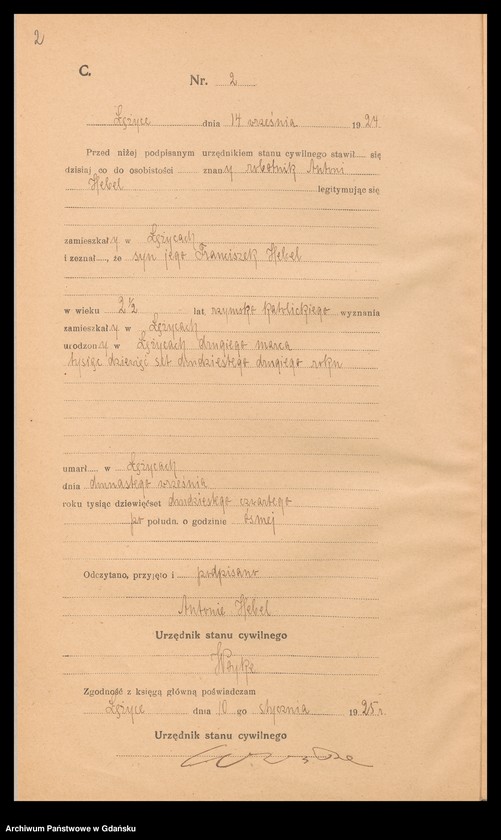 2
C.
Nr. 2
Łężyce dnia 14 września 1924
Przed niżej podpisanym urzędnikiem stanu cywilnego stawił się
dzisiaj, co do osobistości znany robotnik Antoni
Hebel legitymując się
zamieszkały w Łężycach
i zeznał, że syn jego Franciszek Hebel
w wieku 2 ½ lat, rzymsko katolickiego wyznania
zamieszkały w Łężycach
urodzony w Łężycach drugiego marca
tysiąc dziewięć set dwudziestego drugiego roku
umarł w Łężycach
dnia dwunastego września
roku tysiąc dziewięćset dwudziestego czwartego
po połudn. o godzinie ósmej
Odczytano, przyjęto i podpisano
Antonie Hebel
Urzędnik stanu cywilnego
Zgodność z księgą główną poświadczam
Łężyce dnia 10 go stycznia 1925 r.
Urzędnik stanu cywilnego
Archiwum Państwowe w Gdańsku